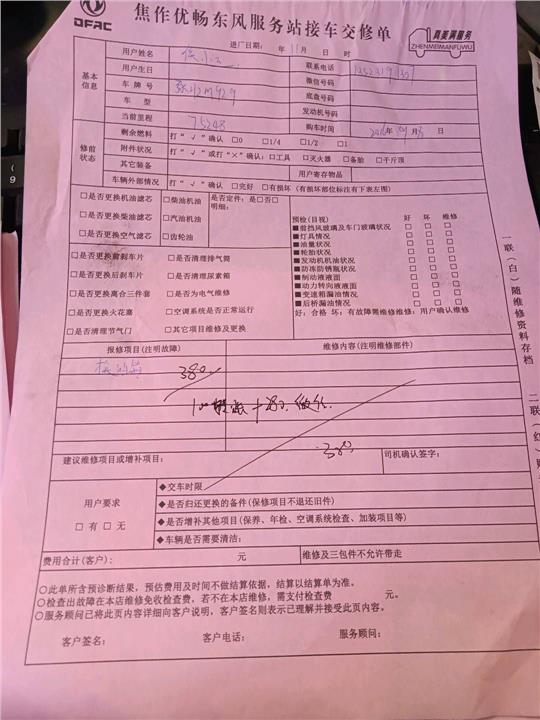 DFAC
焦作优畅东风服务站接车交修单
真美满服务
ZHENMEIMANFUWU
进厂日期: 年 11 月 日 时
基本信息
用户姓名
联系电话
用户生日
微信号码
车 牌 号
底盘号码
车 型
发动机号码
当前里程 75248
购车时间 年 月 日
修前状态
剩余燃料 打“√”确认 □0 □1/4 □1/2 □1
附件状况 打“√”或打“×”确认: □工具 □灭火器 □备胎 □千斤顶
其它装备 用户寄存物品
车辆外部情况 打“√”确认 □完好 □有损坏(有损坏部位标注有下表左图)
□是否更换机油滤芯 □柴油机油 □是否定件: 是□否□
明细:
□是否更换柴油滤芯 □汽油机油
□是否更换空气滤芯 □齿轮油
□是否更换前刹车片 □是否清理排气筒
□是否更换后刹车片 □是否清理尿素箱
□是否更换离合三件套 □是否为电气维修
□是否更换火花塞 □空调系统是否正常运行
□是否清理节气门 □其它项目维修及更换
预检(目视) 好 坏 维修
■前挡风玻璃及车门玻璃状况 □ □ □
■灯具情况 □ □ □
■油量状况 □ □ □
■轮胎状况 □ □ □
■发动机机油状况 □ □ □
■防冻防锈瓶状况 □ □ □
■制动液液面 □ □ □
■动力转向液液面 □ □ □
■变速箱漏油情况 □ □ □
■后桥漏油情况 □ □ □
好: 合格 坏: 有故障需维修维修: 用户确认维修
报修项目(注明故障)
维修内容(注明维修部件)
380
380
建议维修项目或增补项目:
司机确认签字:
用户要求
□ 有 □ 无
◆交车时限
◆是否归还更换的备件(保修项目不退还旧件)
◆是否增补其他项目(保养、年检、空调系统检查、加装项目等)
◆车辆是否需要清洁:
费用合计(客户): 元
维修及三包件不允许带走
○此单所含预诊断结果,预估费用及时间不做结算依据,结算以结算单为准。
○检查出故障在本店维修免收检查费,若不在本店维修,需支付检查费 元。
○服务顾问已将此页内容详细向客户说明,客户签名则表示已理解并接受此页内容。
客户签名: 客户电话: 服务顾问:
一联(白)随维修资料存档
二联(红)